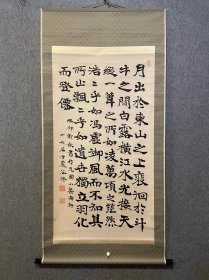 月出於東山之上裵徊於斗
牛之間白露橫江水光接天
縱一葦之所如凌萬頃之茫然
浩浩乎如馮虛御風而不知其
所止飄飄乎如遺世獨立羽化
而登僊